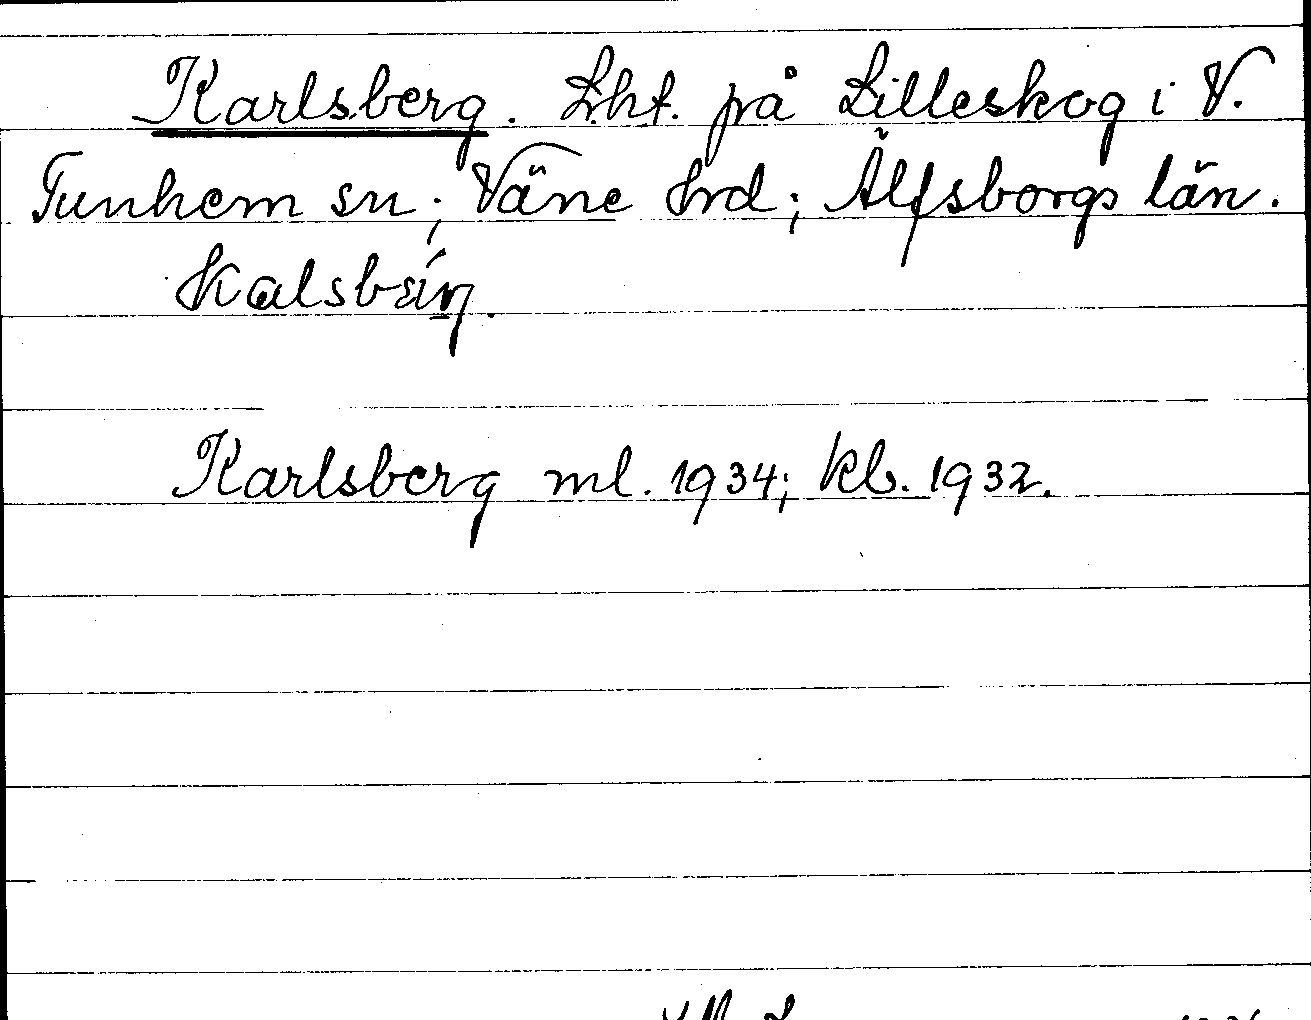 Karlsberg. Lht. på Lilleskog i V.
Tunhem sn; Väne hrd; Älfsborgs län.
Karlsberg ml. 1934; kb. 1932.